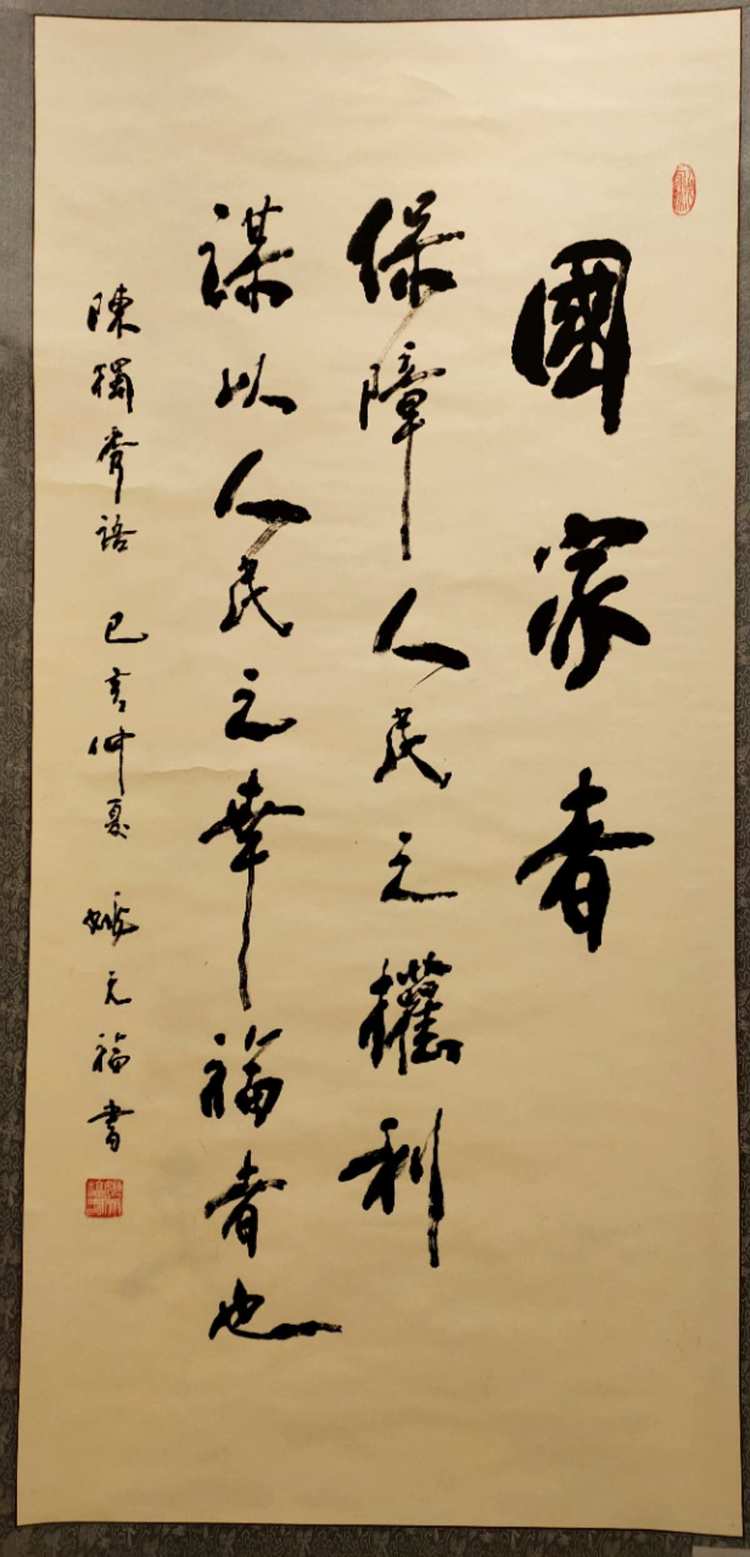 國家者
保障人民之權利
謀以人民之幸福者也
陳獨秀語 己亥仲夏 姚元福書